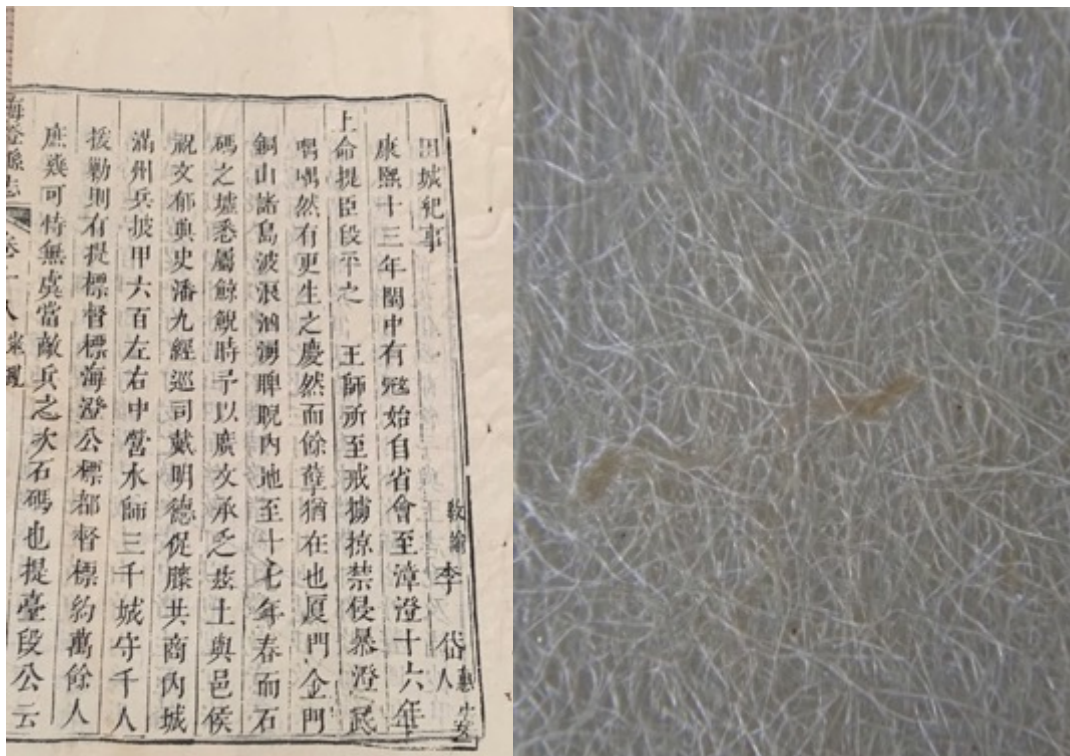 城紀事
教諭李 岱 惠安人
康熙十三年閩中有冦始自省會至漳澄十六年
上命提臣段平之 王師所至戒擄掠禁侵暴澄民
喁喁然有更生之慶然而餘孽猶在也厦門金門
銅山諸島波浪洶湧睥睨内地至十七年春而石
碼之墟悉屬鯨鯢時予以廣文承乏玆土與邑侯
祝文郁典史潘九經巡司戴明德促膝共商内城
滿州兵披甲六百左右中營水師三千城守千人
援勦則有提標督標海澄公標都督標約萬餘人
庶幾可恃無虞當敵兵之次石碼也提臺段公云
海澄縣志